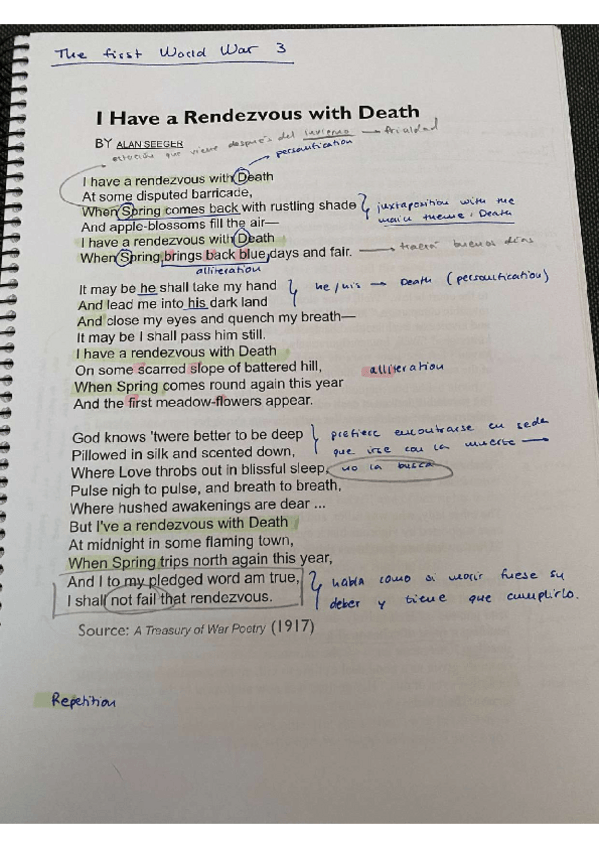 The first World War 3
I Have a Rendezvous with Death
BY ALAN SEEGER
estación que viene después del invierno → frialdad
personification
I have a rendezvous with Death
At some disputed barricade,
When Spring comes back with rustling shade
juxtaposition with the
main theme: Death
And apple-blossoms fill the air—
I have a rendezvous with Death
When Spring brings back blue days and fair.
→ traerá buenos días
alliteration
It may be he shall take my hand
he/his → Death (personification)
And lead me into his dark land
And close my eyes and quench my breath—
It may be I shall pass him still.
I have a rendezvous with Death
On some scarred slope of battered hill,
alliteration
When Spring comes round again this year
And the first meadow-flowers appear.
God knows 'twere better to be deep
prefiere encontrarse en seda
Pillowed in silk and scented down,
que irse con la muerte →
Where Love throbs out in blissful sleep,
no la busca
Pulse nigh to pulse, and breath to breath,
Where hushed awakenings are dear ...
But I've a rendezvous with Death
At midnight in some flaming town,
When Spring trips north again this year,
And I to my pledged word am true,
habla como si morir fuese su
I shall not fail that rendezvous.
deber y tiene que cumplirlo.
Source: A Treasury of War Poetry (1917)
Repetition